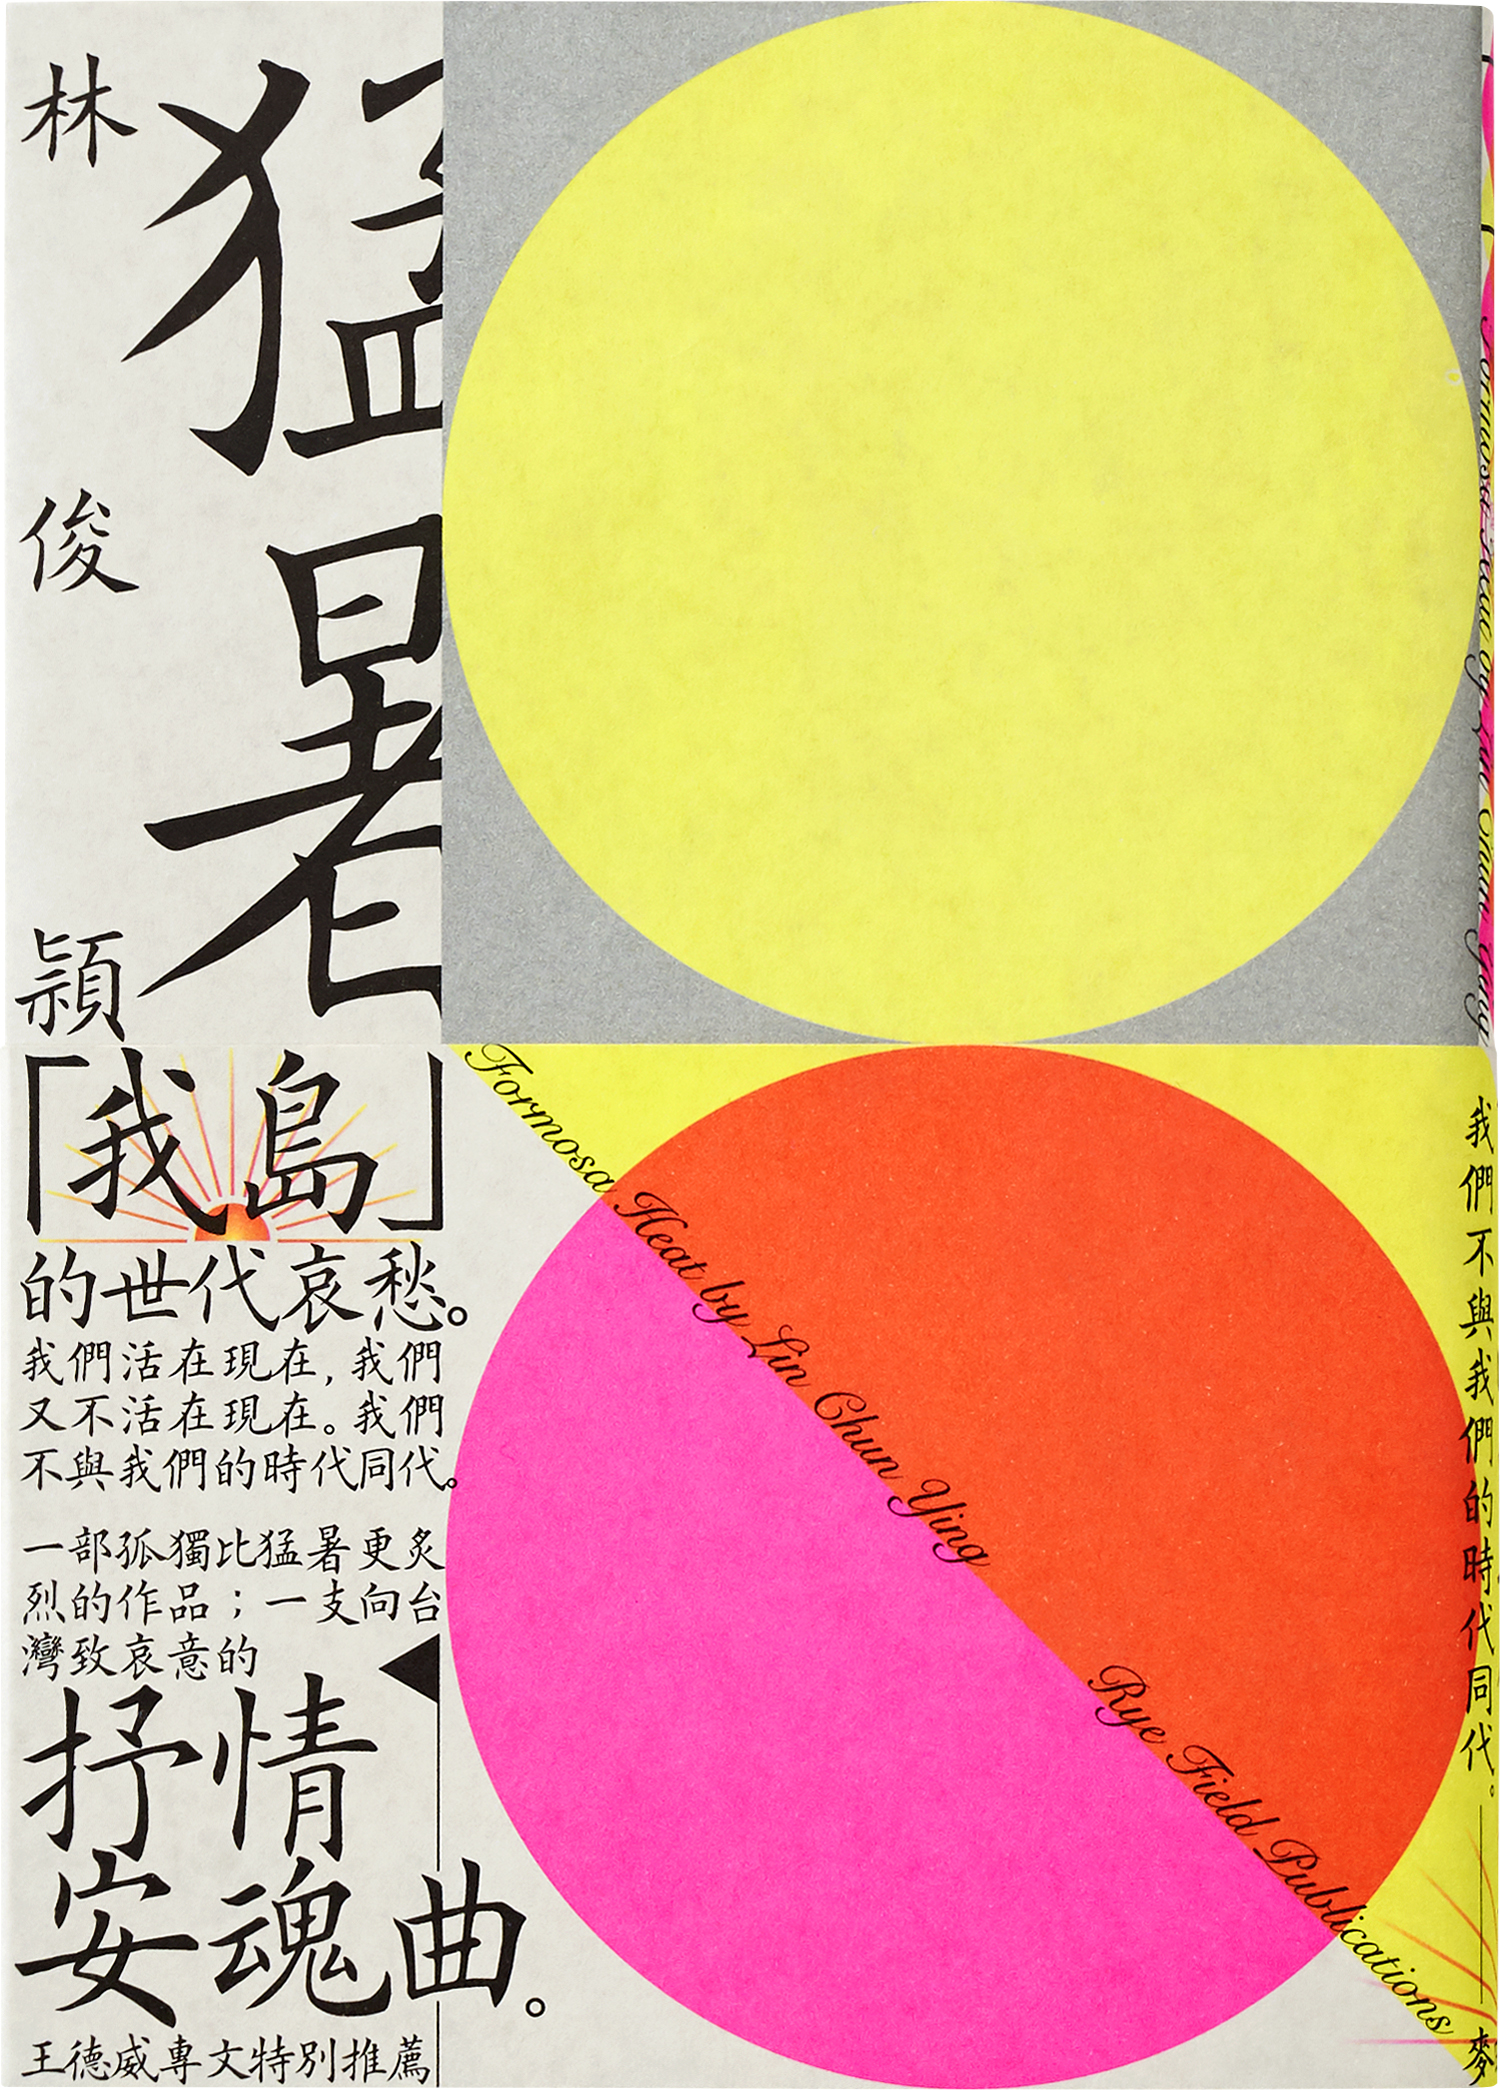 林俊頴
猛暑
「我島」
的世代哀愁。
我們活在現在,我們
又不活在現在。我們
不與我們的時代同代。
一部孤獨比猛暑更炙
烈的作品；一支向台
灣致哀意的
抒情
安魂曲。
王德威專文特別推薦
Formosa Heat by Lin Chun Ying
Rye Field Publications
Formosa Heat by Lin Chun Ying
我們不與我們的時代同代。——麥